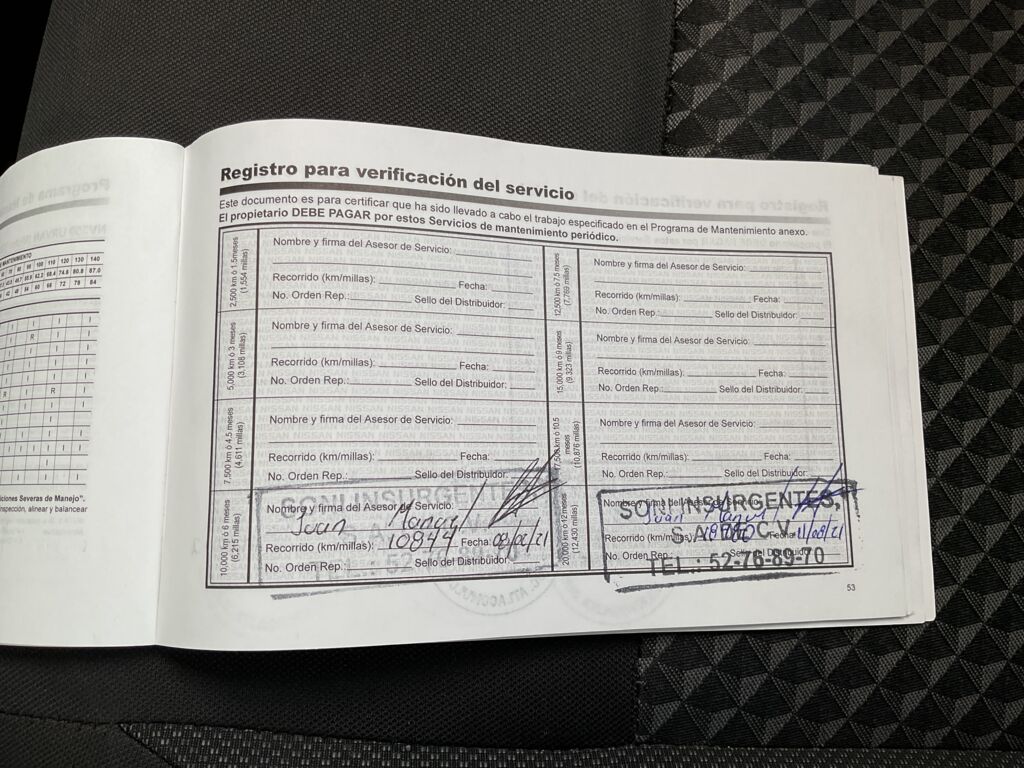 Registro para verificación del servicio
Este documento es para certificar que ha sido llevado a cabo el trabajo especificado en el Programa de Mantenimiento anexo.
El propietario DEBE PAGAR por estos Servicios de mantenimiento periódico.
2,500 km ó 1.5meses
(1,554 millas)
Nombre y firma del Asesor de Servicio:
Recorrido (km/millas): Fecha:
No. Orden Rep.: Sello del Distribuidor:
5,000 km ó 3 meses
(3,108 millas)
Nombre y firma del Asesor de Servicio:
Recorrido (km/millas): Fecha:
No. Orden Rep.: Sello del Distribuidor:
7,500 km ó 4.5 meses
(4,611 millas)
Nombre y firma del Asesor de Servicio:
Recorrido (km/millas): Fecha:
No. Orden Rep.: Sello del Distribuidor:
10,000 km ó 6 meses
(6,215 millas)
SONI INSURGENTES
Nombre y firma del Asesor de Servicio:
Juan
Recorrido (km/millas): 10844 Fecha:
No. Orden Rep.: Sello del Distribuidor:
12,500 km ó 7.5 meses
(7,769 millas)
Nombre y firma del Asesor de Servicio:
Recorrido (km/millas): Fecha:
No. Orden Rep.: Sello del Distribuidor:
15,000 km ó 9 meses
(9,323 millas)
Nombre y firma del Asesor de Servicio:
Recorrido (km/millas): Fecha:
No. Orden Rep.: Sello del Distribuidor:
17,500 km ó 10.5
meses
(10,876 millas)
Nombre y firma del Asesor de Servicio:
Recorrido (km/millas): Fecha:
No. Orden Rep.: Sello del Distribuidor:
20,000 km ó 12 meses
(12,430 millas)
Nombre y firma del Asesor de Servicio:
SONI INSURGENTES,
Juan
Recorrido (km/millas): Fecha:
S.A. DE C.V.
No. Orden Rep.: Sello del Distribuidor:
TEL.: 52-76-89-70
53
MANTENIMIENTO
100 110 120 130 140
62.2 68.4 74.6 80.8 87.0
60 66 72 78 84
iciones Severas de Manejo".
inspección, alinear y balancear